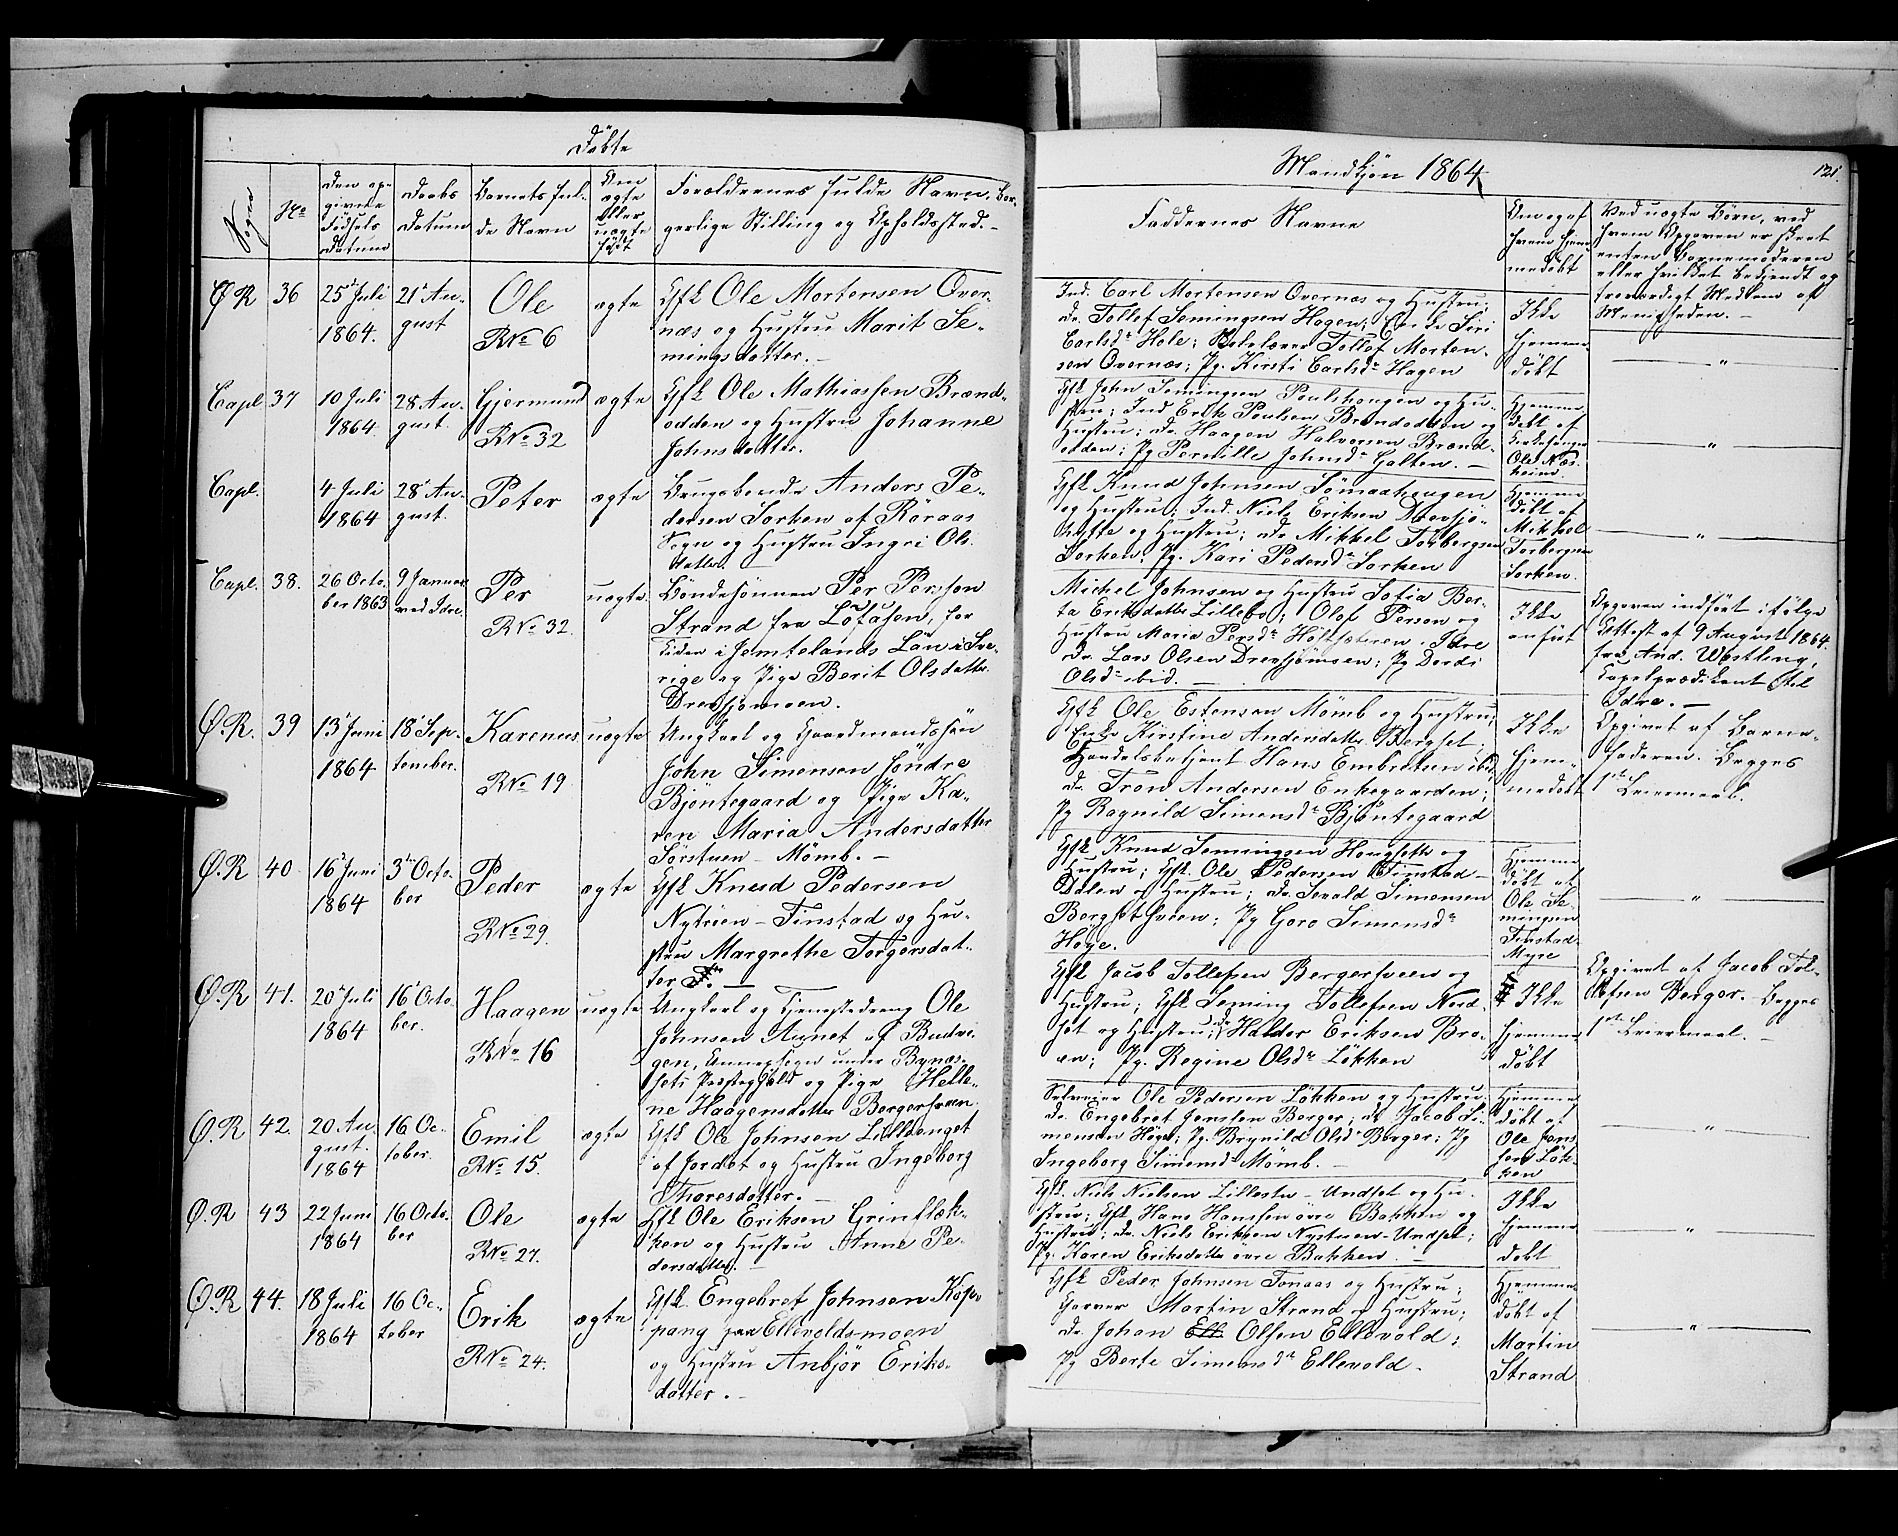 Døbte
Mandkjøn 1864
121.
Sogn
No
Den op-
givne
Fødsels
Datum
Daabs
Datum
Barnets ful-
de Navn
Om
ægte
eller
uægte
født
Forældrenes fulde Navn, Bor-
gerlige Stilling og Opholdssted.-
Faddernes Navne
Om og af
hvem hjem-
medøbt
Ved uægte Børn, ved
hvem Opgaven er skeet
enten Barnemoderen
eller hvilket bekjendt og
troværdigt Medlem af
Menigheden. -
Ø R
36
25de Juli
1864.
21de Au-
gust
Ole
R No 6
ægte
Gfk Ole Mortensen Over-
næs og Hustru Marit Se-
mingsdatter. -
Ind. Carl Mortensen Overnæs og Hustru;
do. Tollef Semingsen Hagen; Enke Siri
Carlsdr Hole; Tollef Morten-
sen Overnæs; Pg. Kirsti Carlsdr Hagen
Ikke
hjemme-
døbt
"
Capl
37
10 Juli
1864.
28 Au-
gust.
Gjermund
R No 32
ægte
Gfk Ole Mathiassen Brænd-
odden og Hustru Johanne
Johnsdatter.
Gfk John Simingsen Poulshaugen og Hu-
stru; Ind Erik Poulsen Brændodden og
Hustru; do. Haagen Halvorsen Brænd-
odden; Pg Pernille Johnsdr Galten. -
Hjemme-
døbt af
Kirkesanger
Ole Næs-
heim.
"
Capl.
4 Juli
1864
28de Au-
gust.
Peter
ægte
Brugsbonde Anders Pe-
dersen Sorken af Røraas
Sogn og Hustru Ingri Ols-
datter.
Gfk Knud Johnsen Sömaahaugen
og Hustru; Ind. Niels Eriksen Drevsjö-
hytte og Hustru; do Mikkel Torbergsen
Sorken. Pg. Kari Pedersdr Sorken
Hjemme
døbt af
Mikkel
Torbergsen
Sorken.
"
Capl.
38.
26 Octo-
ber 1863
9 Januar
ved Idre.
Per
R No 32.
uægte.
Bondesønnen Per Persson
Strand fra Löfåsen, for
Tiden i Jemtelands Län i Sve-
rige og Pige Berit Olsdatter
Drevsjømoen.
Michel Johnsen og Hustru Sofia Ber-
ta Eriksdatter Lillebo; Olof Person og
Hustru Maria Persdr Idre
do. Lars Olsen Drevsjømoen; Pg Dordi
Olsdr ibid. -
Ikke
anført
Opgaven indført ifølge
Attest af 9 August 1864
fra And. Westling,
Capelprædikant til
Idre. -
Ø. R.
39
13de Juni
1864
18de Sep-
tember.
Karenus
R No 19
uægte
Ungkarl og Gaardmandssøn
John Simensen Söndre
Bjöntegaard og Pige Ka-
ren Maria Andersdatter
Sörstuen - Mömb. -
Gfk Ole Estensen Mömb og Hustru;
Enke Kirstine Andersdatter Bergset;
Handelsbetjent Hans Embretsen ibid
do. Tron Andersen Enkegaarden;
Pg Ragnild Simensdr Bjöntegaard
Ikke
hjem-
medøbt
Opgivet af Barne-
faderen. Begges
1ste Leiermaal.
Ø. R
40
16de Juni
1864
3die Octo-
ber
Peder
R No 29.
ægte
Gfk Knud Pedersen
Nytröen - Finstad og Hu-
stru Margrethe Torgersdat-
ter
Gfk Knud Semingsen Haugsette og
Hustru; Gfk. Ole Pedersen Finstad-
Dalen og Hustru; do. Sevald Simensen
Bergsethveen; Pg Goro Simensdr
Hage.
Hjemme
døbt af
Ole Se-
mingsen
Finstad-
Myre
"
Ø. R
41.
20de Juli
1864
16de Octo-
ber.
Haagen
R No 16
uægte
Ungkarl og Tjenestedreng Ole
Johnsen Aunet af Budvi-
gen, Annexsogn under Bynæs-
sets Præstegjæld og Pige Helle-
ne Haagensdatter Bergersveen.
Gfk Jacob Tollefsen Bergersveen og
Hustru; Gfk. Seming Tollefsen Nord-
set og Hustru; do Haldor Eriksen Bro-
en; Pg. Regine Olsdr Løkken
Ikke
hjemme
døbt
Opgivet af Jacob Tol-
lefsen Berger. Begges
1ste Leiermaal. -
Ø. R
42.
20 Au-
gust.
1864
16 Oc-
tober.
Emil
R No 15.
ægte
Gfk Ole Johnsen Lilleenget
af Jordet og Hustru Ingeborg
Thoresdatter. -
Selveier Ole Pedersen Løkken og Hustru;
do. Engebret Jenssen Berger; do Jacob Si-
mensen Høye; Pg. Brynild Olsdr Berger; Pg
Ingeborg Simensdr Mömb. -
Hjemme
døbt af
Ole Jens-
sen Løk-
ken
"
Ø. R
43
22 Juni
1864
16 Octo-
ber
Ole
R No 27.
ægte
Gfk Ole Eriksen Grinflæk-
ken og Hustru Anne Pe-
dersdatter. -
Gfk. Niels Nielsen Lillestu - Undset og Hu-
stru; Gfk Hans Hanssen övre Bakken og
Hustru; do. Niels Eriksen Nystuen - Undset;
Pg. Karen Eriksdatter övre Bakken. -
Ikke
hjemme
døbt
"
Ø. R
44.
18 Juli
1864
16 Oc-
tober
Erik
R No 24.
ægte
Gfk. Engebret Johnsen Kop-
pang paa Ellevoldsmoen
og Hustru Anbjör Eriks-
datter. -
Gfk Peder Johnsen Tonaas og Hustru;
Garver Martin Strand og Hustru;
do. Johan Olsen Ellevold;
Pg Berte Simensdr Ellevold.
Hjemme-
døbt af
Martin
Strand
"